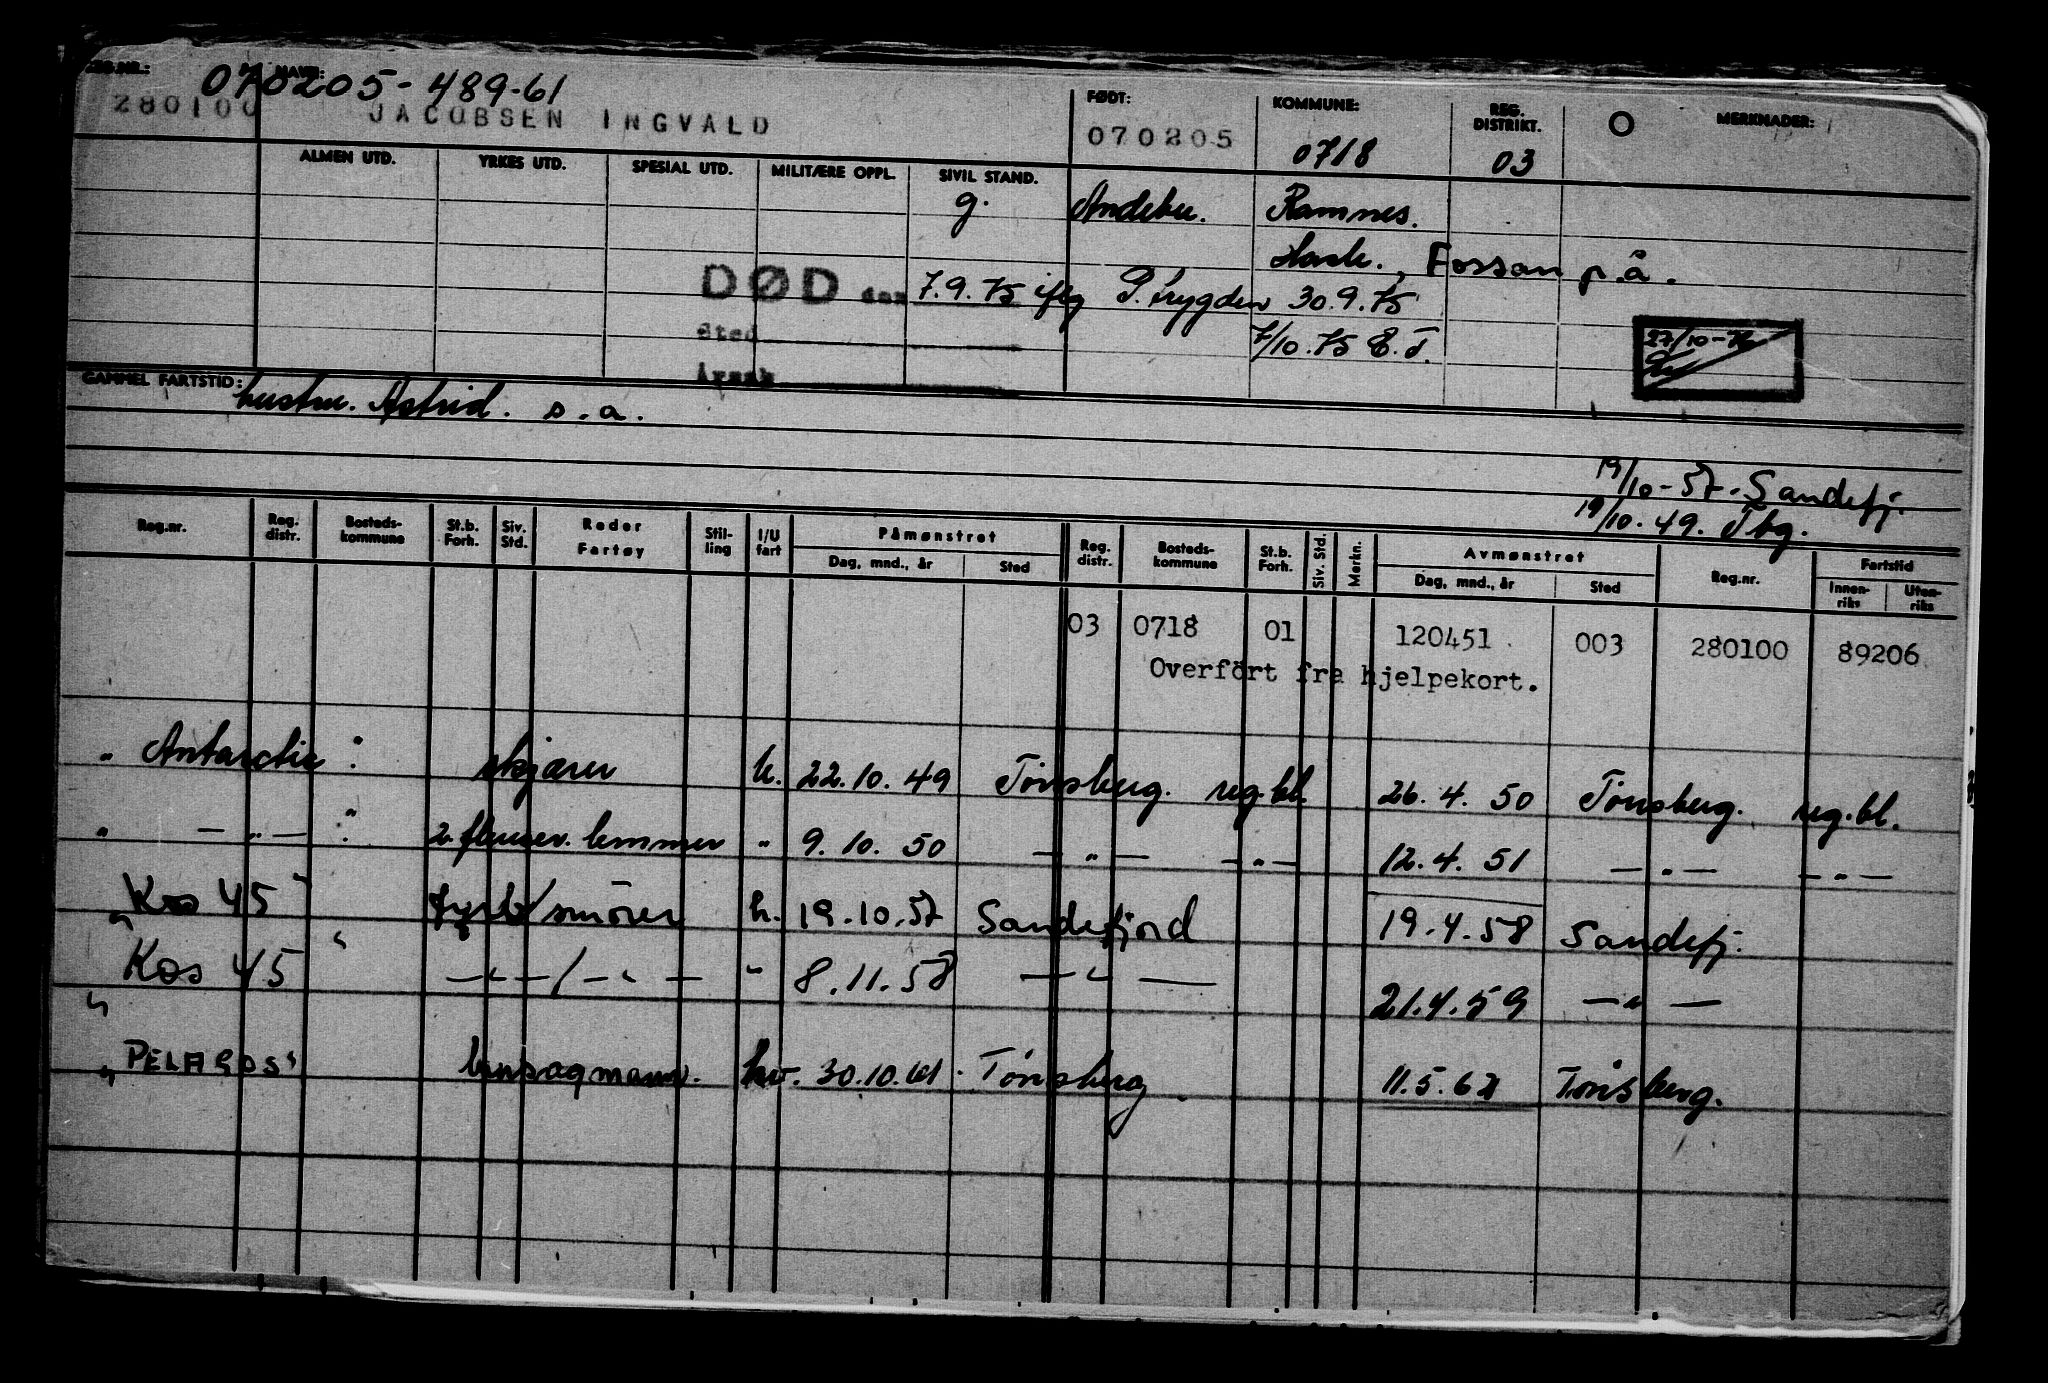 REG.NR.: NAVN: 070205-489-61
280100 JACOBSEN INGVALD
FØDT: 070205
KOMMUNE: 0718
REG. DISTRIKT. 03
MERKNADER:
ALMEN UTD. YRKES UTD. SPESIAL UTD. MILITÆRE OPPL. SIVIL STAND.
g. Andebu. Ramnes.
Fossan p.å.
DØD den 7.9.75 iflg P.trygden 30.9.75
Sted 7/10.75 E.T.
Årsak
27/10-76
GAMMEL FARTSTID: hustru. Astrid. s.a.
19/10-57. Sandefj.
19/10.49. Tbg.
Reg.nr. Reg. distr. Bosteds-kommune St.b. Forh. Siv. Std. Reder Fartøy Stil-ling I/U fart Påmønstret Dag, mnd., år Sted Reg. distr. Bosteds-kommune St.b. Forh. Siv. Std. Merkn. Avmønstret Dag, mnd., år Sted Reg.nr. Fartstid Innen-riks Uten-riks
03 0718 01 120451 003 280100 89206
Overført fra hjelpekort.
" Antarctic " skjærer h. 22.10.49 Tönsberg. reg.bl. 26.4.50 Tönsberg. reg.bl.
" — " — " 2. flenser. lemmer " 9.10.50 — " — — " — 12.4.51 — " — — " —
" Kos 45 " fyrb/smörer h. 19.10.57 Sandefjord 19.4.58 Sandefj.
" Kos 45 " — " — / — " — " 8.11.58 — " — 21.4.59 — " —
" PELAGOS " bensagmann. hv. 30.10.61. Tönsberg. 11.5.62 Tönsberg.